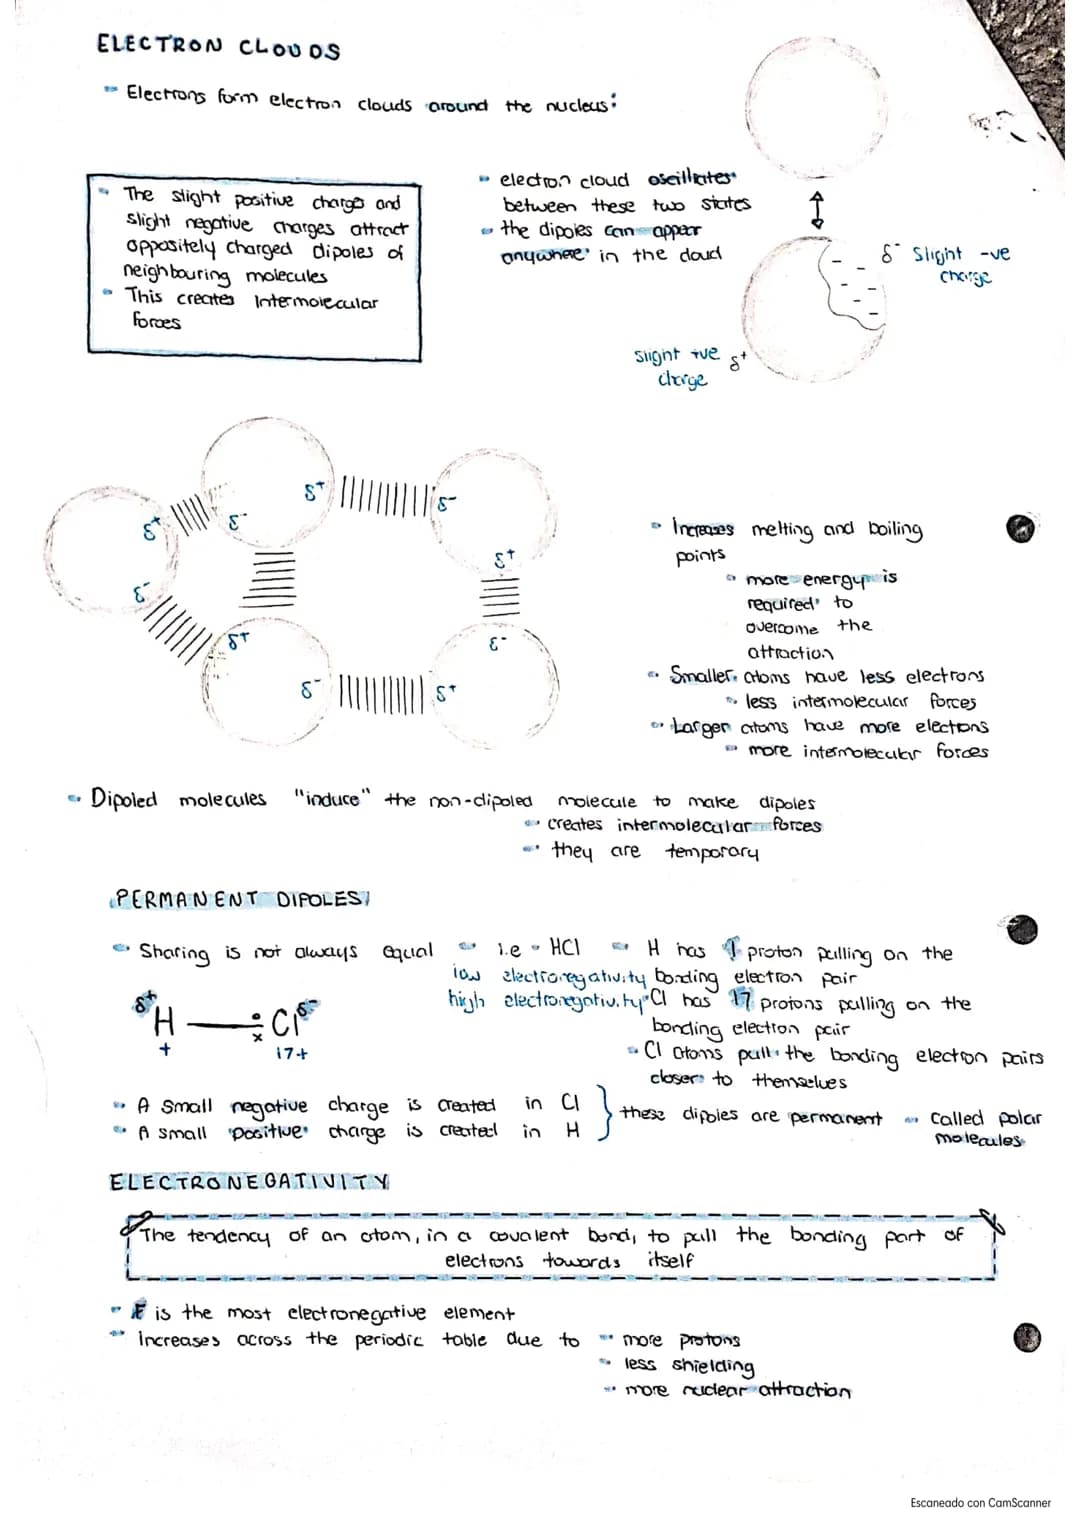 ELECTRON CLOUDS
Electrons form electron clouds around the nucleus:
The slight positive charge and
slight negative charges attract
oppositely charged dipoles of
neighbouring molecules
This creates Intermolecular
forces
electron cloud oscillates
between these two states
the dipoles can appear
anywhere in the cloud
δ⁻ Slight -ve
charge
slight +ve δ⁺
charge
δ⁺ δ⁻
δ⁺ δ⁻
δ⁺
δ⁻
δ⁺ δ⁻
δ⁻ δ⁺
Increases melting and boiling
points
more energy is
required to
overcome the
attraction
Smaller atoms have less electrons
less intermolecular forces
Larger atoms have more electrons
more intermolecular forces
Dipoled molecules "induce" the non-dipoled molecule to make dipoles
creates intermolecular forces
they are temporary
PERMANENT DIPOLES
Sharing is not always equal
i.e - HCl
low electronegativity
high electronegativity
H has 1 proton pulling on the
bonding electron pair
Cl has 17 protons pulling on the
bonding electron pair
Cl atoms pull the bonding electron pairs
closer to themselves
δ⁺H — Cl δ⁻
+ 17+
A small negative charge is created in Cl
A small positive charge is created in H
these dipoles are permanent
called polar
molecules
ELECTRONEGATIVITY
The tendency of an atom, in a covalent bond, to pull the bonding part of
electrons towards itself
F is the most electronegative element
Increases across the periodic table due to
more protons
less shielding
more nuclear attraction
Escaneado con CamScanner